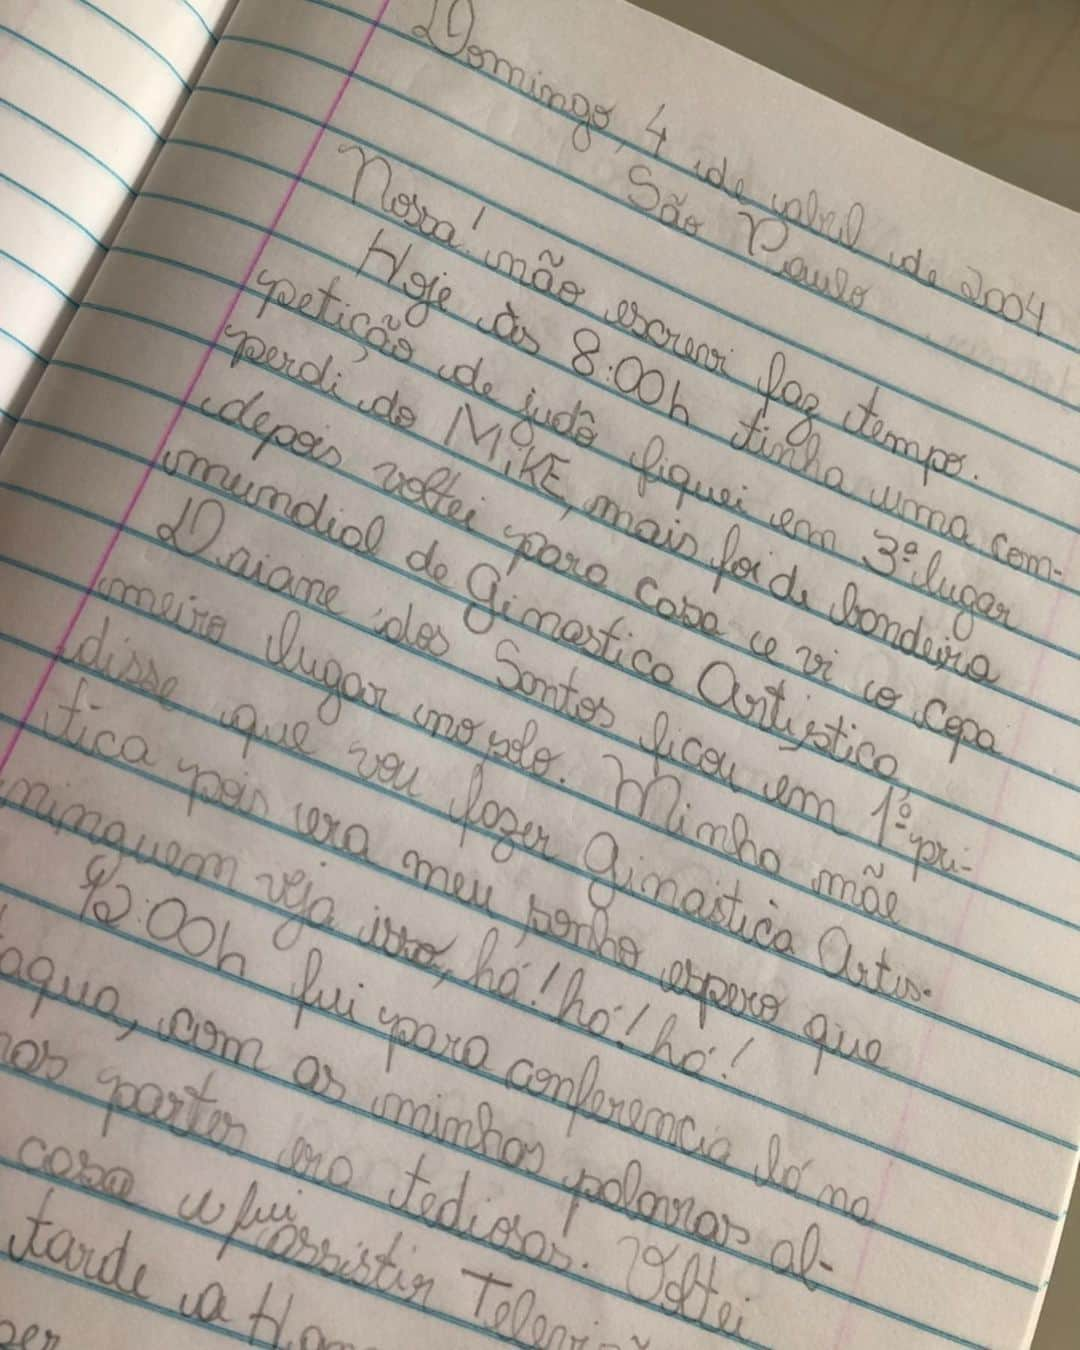 Domingo, 4 de abril de 2004
São Paulo
Nossa! não escrevi faz tempo.
Hoje às 8:00h tinha uma com-
petição de judô fiquei em 3º lugar
perdi do MiKE, mais foi de bandeira
depois voltei para casa e vi a copa
mundial de Ginastica Artistica
Daiane dos Santos ficou em 1º pri-
meiro lugar no solo. Minha mãe
disse que vou fazer Ginastica Artis-
tica pois era meu sonho espero que
ninguem veja isso, há! há! há!
12:00h fui para conferencia lá na
aqua, com as minhas palavras al-
mas partes era tediosas. Voltei
casa e fui assistir
tarde a